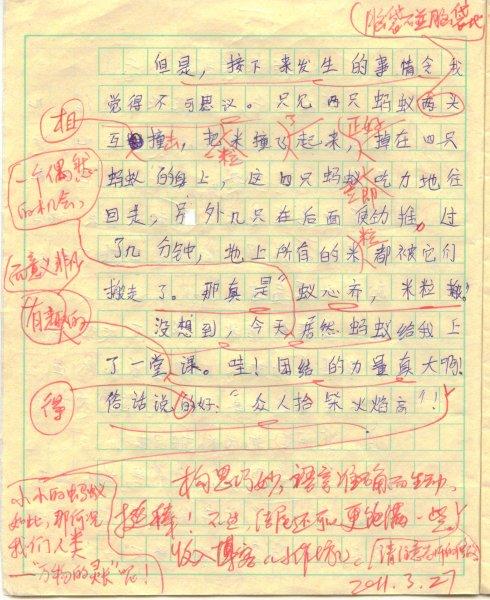 (脑袋碰脑袋地
但是，接下来发生的事情令我
觉得不可思议。只见两只蚂蚁两头
相
互撞去，把米撞了起来，掉在四只
米粒
正好
一个偶然
的机会，
蚂蚁的身上，这四只蚂蚁吃力地往
立即
回走，另外几只在后面使劲推。过
了几分钟，地上所有的米都被它们
粒
而意义非凡
搬走了。那真是“蚁心齐，米粒搬”！
有趣的
没想到，今天居然蚂蚁给我上
了一堂课。哇！团结的力量真大啊！
得
俗话说的好：“众人拾柴火焰高”！
小小的蚂蚁
如此，那何况
我们人类
——“万物的灵长”呢！
构思巧妙，语言准确而生动，
挺棒！不过，结尾还可更饱满一些！
收入博客《小作坊》。
2011.3.27